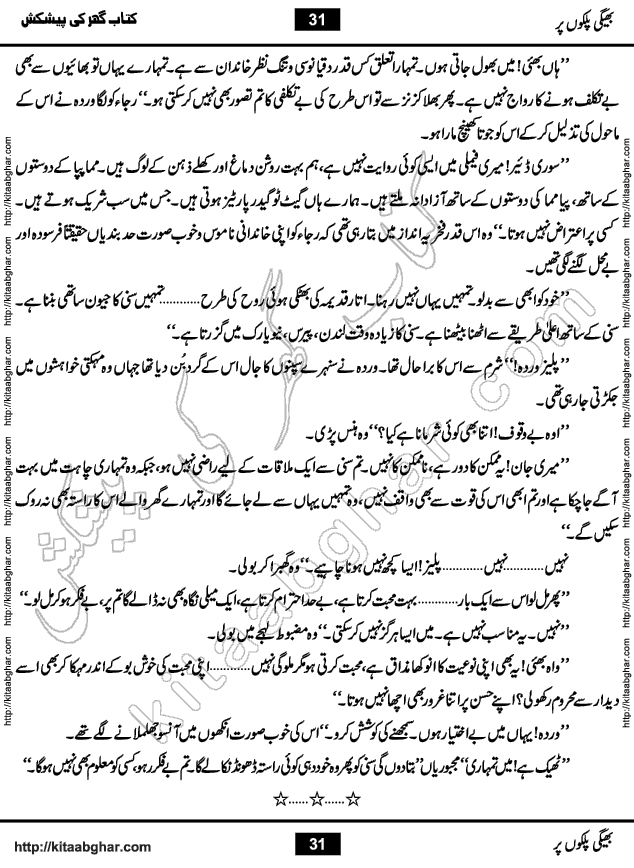 بھیگی پلکوں پر
31
کتاب گھر کی پیشکش
’’ہاں بھئی! میں بھول جاتی ہوں۔ تمہارا تعلق کس قدر دقیانوسی و تنگ نظر خاندان سے ہے۔ تمہارے یہاں تو بھائیوں سے بھی
بے تکلف ہونے کا رواج نہیں ہے۔ پھر بھلا کزنز سے تو اس طرح کی بے تکلفی کا تم تصور بھی نہیں کر سکتی ہو۔‘‘ رجاء کو لگا وردہ نے اس کے
ماحول کی تذلیل کر کے اس کو جوتا کھینچ مارا ہو۔
’’سوری ڈئیر! میری فیملی میں ایسی کوئی روایت نہیں ہے، ہم بہت روشن دماغ اور کھلے ذہن کے لوگ ہیں۔ مما پپا کے دوستوں
کے ساتھ، پپا مما کی دوستوں کے ساتھ آزادانہ ملتے ہیں۔ ہمارے ہاں گیٹ ٹو گیدر پارٹیز ہوتی ہیں۔ جس میں سب شریک ہوتے ہیں۔
کسی پر اعتراض نہیں ہوتا۔‘‘ وہ اس قدر فخریہ انداز میں بتا رہی تھی کہ رجاء کو اپنی خاندانی ناموس و خوب صورت حد بندیاں حقیقتاً فرسودہ اور
بے محل لگنے لگی تھیں۔
’’خود کو ابھی سے بدلو۔ تمہیں یہاں نہیں رہنا۔ آثار قدیمہ کی بھٹکی ہوئی روح کی طرح............ تمہیں سنی کا جیون ساتھی بننا ہے۔
سنی کے ساتھ اعلیٰ طریقے سے اٹھنا بیٹھنا ہے۔ سنی کا زیادہ وقت لندن، پیرس، نیویارک میں گزرتا ہے۔‘‘
’’پلیز وردہ!‘‘ شرم سے اس کا برا حال تھا۔ وردہ نے سنہرے سپنوں کا جال اس کے گرد بُن دیا تھا جہاں وہ مہکتی خواہشوں میں
جکڑتی جا رہی تھی۔
’’اوہ بے وقوف! اتنا بھی کوئی شرمانا ہے کیا؟‘‘ وہ ہنس پڑی۔
’’میری جان! یہ ممکن کا دور ہے، ناممکن کا نہیں۔ تم سنی سے ایک ملاقات کے لیے راضی نہیں ہو، جبکہ وہ تمہاری چاہت میں بہت
آگے جا چکا ہے اور تم ابھی اس کی قوت سے بھی واقف نہیں۔ وہ تمہیں یہاں سے لے جائے گا اور تمہارے گھر والے اس کا راستہ بھی نہ روک
سکیں گے۔‘‘
نہیں............ نہیں............ پلیز! ایسا کچھ نہیں ہونا چاہیے۔‘‘ وہ گھبرا کر بولی۔
’’پھر مل لو اس سے ایک بار............ بہت محبت کرتا ہے، بے حد احترام کرتا ہے، ایک میلی نگاہ بھی نہ ڈالے گا تم پر، بے فکر ہو کر مل لو۔‘‘
’’نہیں۔ یہ مناسب نہیں ہے۔ میں ایسا ہرگز نہیں کر سکتی۔‘‘ وہ مضبوط لہجے میں بولی۔
’’واہ بھئی! یہ بھی اپنی نوعیت کا انوکھا مذاق ہے، محبت کرتی ہو مگر ملو گی نہیں............ اپنی محبت کی خوش بو کے اندر مہکا کر بھی اسے
دیدار سے محروم رکھو لی؟ اپنے حسن پر اتنا غرور بھی اچھا نہیں ہوتا۔‘‘
’’وردہ! یہاں میں بے اختیار ہوں۔ سمجھنے کی کوشش کرو۔‘‘ اس کی خوب صورت آنکھوں میں آنسو جھلملانے لگے تھے۔
’’ٹھیک ہے! میں تمہاری ’’مجبوریاں‘‘ بتا دوں گی سنی کو پھر وہ خود ہی کوئی راستہ ڈھونڈ نکالے گا۔ تم بے فکر رہو، کسی کو معلوم بھی نہیں ہوگا۔‘‘
☆......☆......☆
http://kitaabghar.com
31
بھیگی پلکوں پر
http://kitaabghar.com http://kitaabghar.com http://kitaabghar.com http://kitaabghar.com http://kitaabghar.com http://kitaabghar.com
http://kitaabghar.com http://kitaabghar.com http://kitaabghar.com http://kitaabghar.com http://kitaabghar.com http://kitaabghar.com
کتاب گھر کی پیشکش
kitaabghar.com